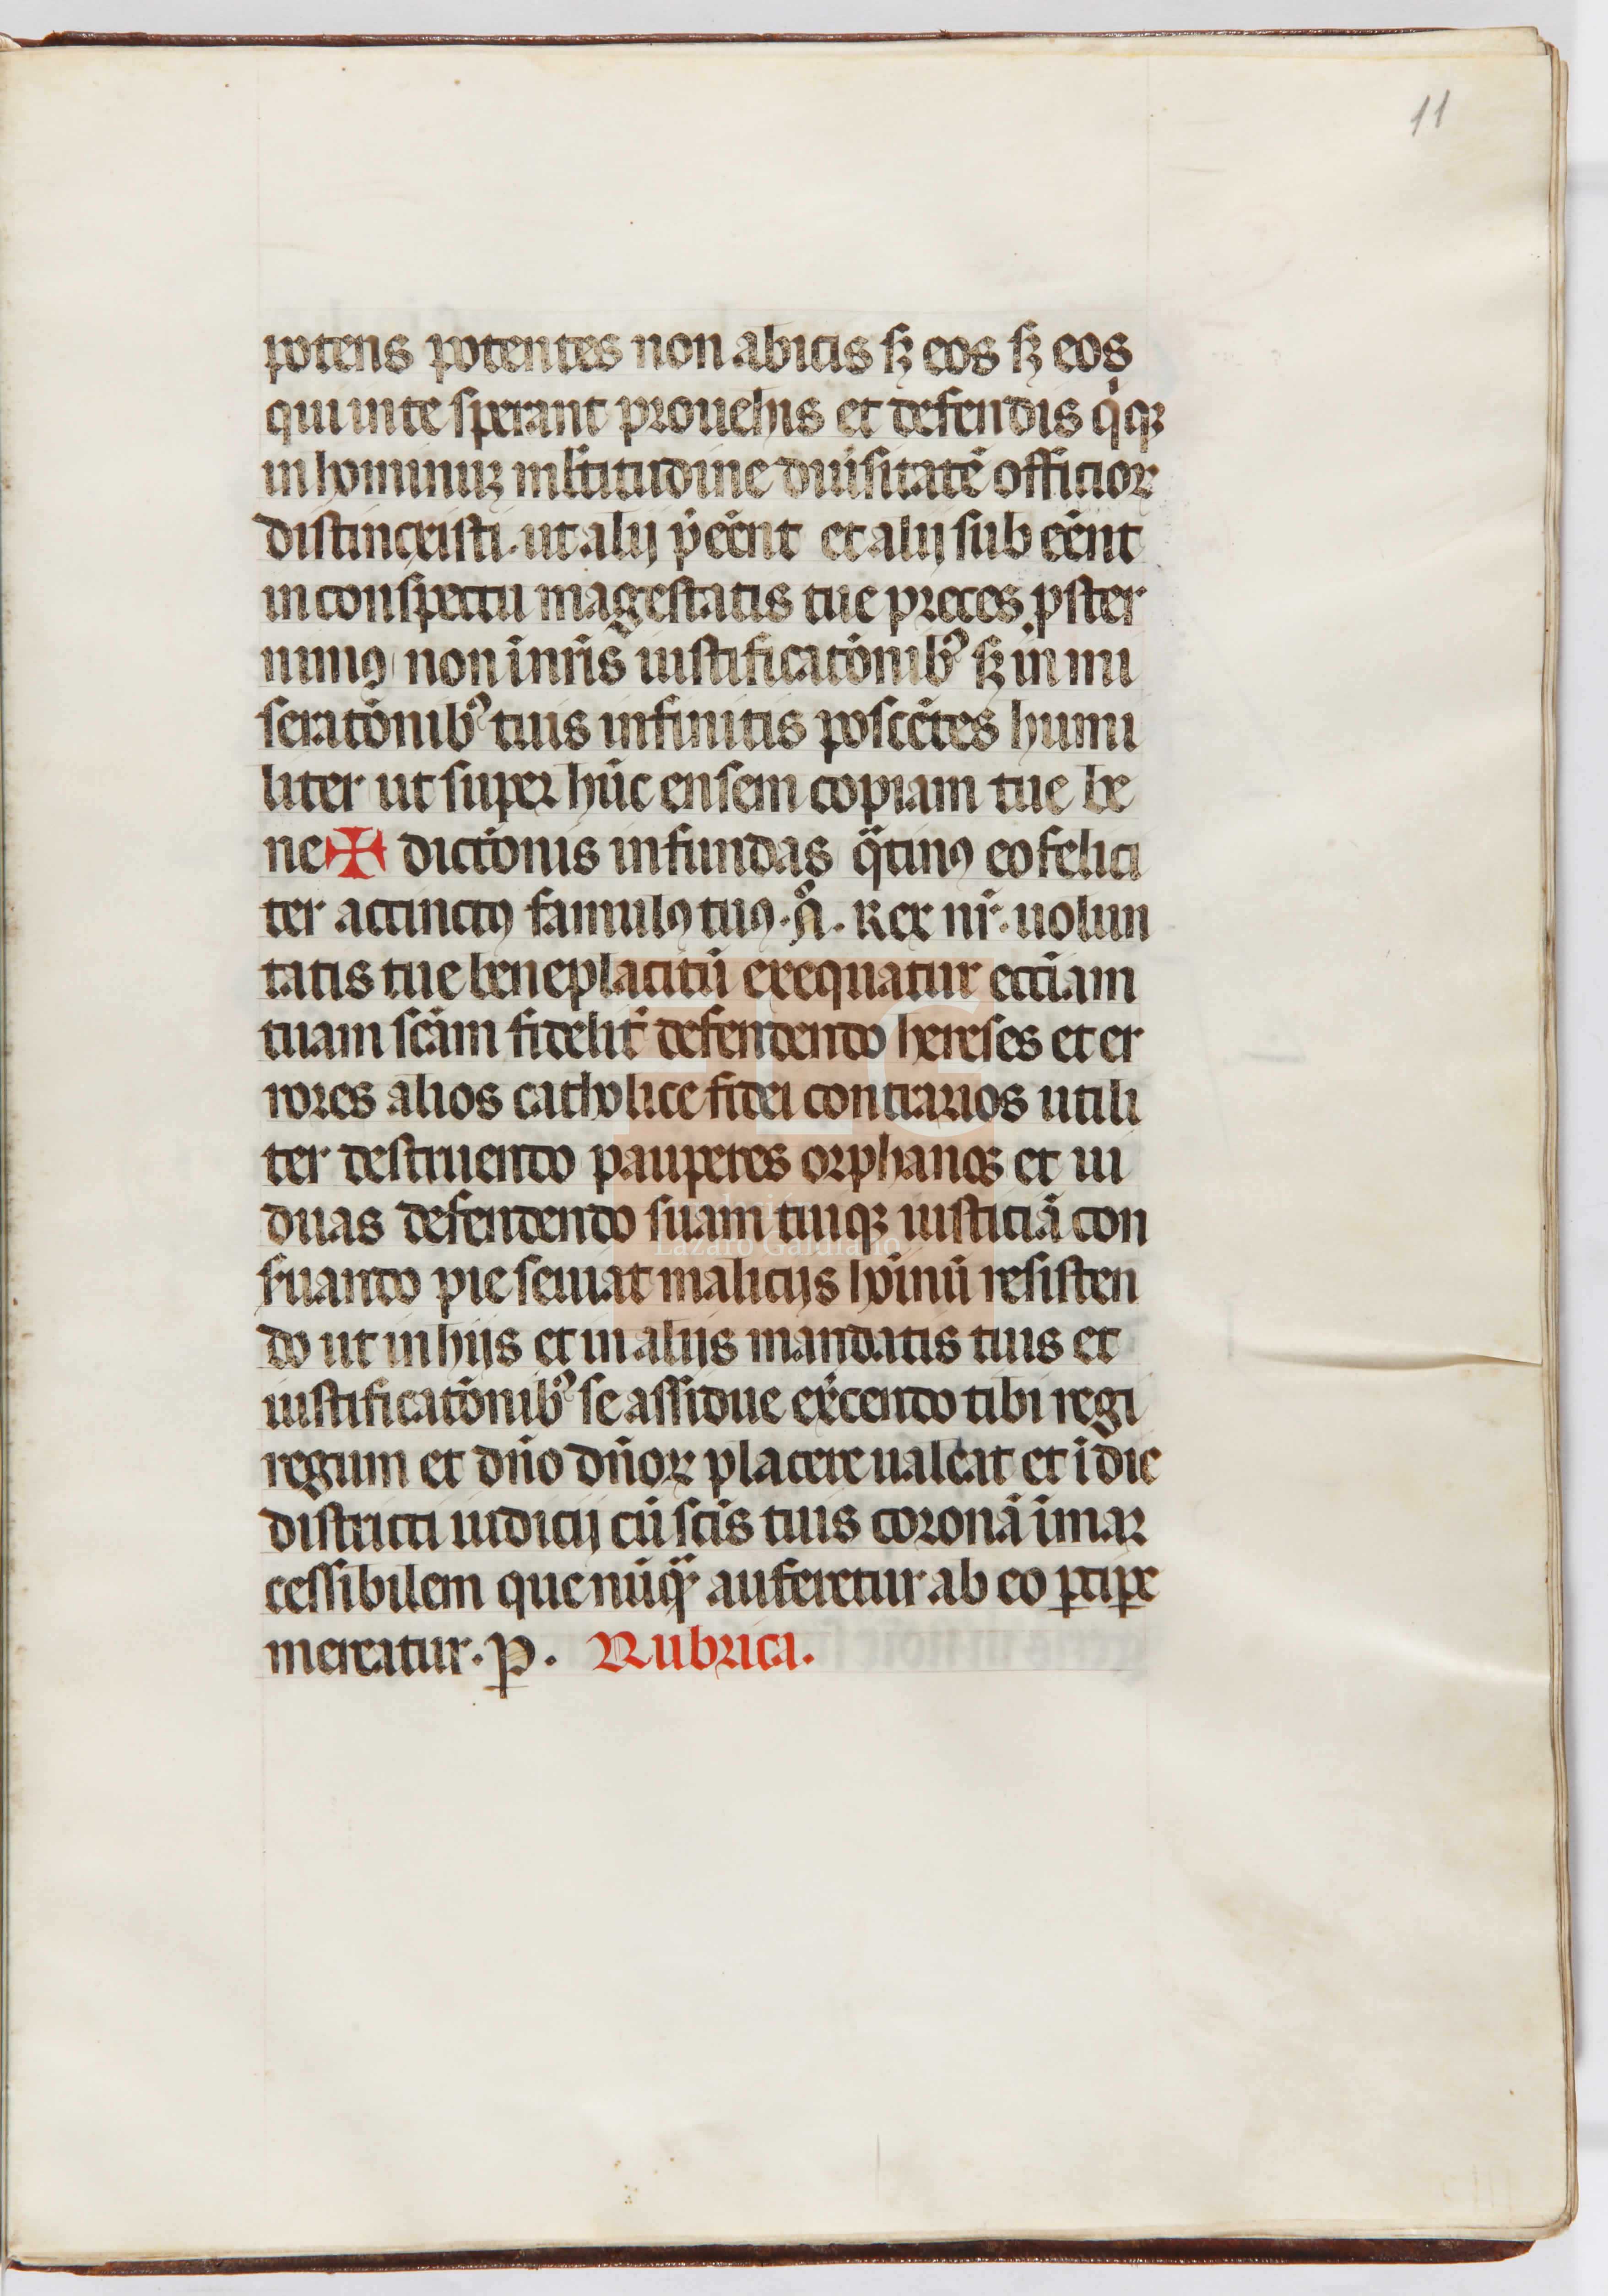 11
potens potentes non abicis sꝫ eos sꝫ eos
qui in te sperant prouehis et defendis qͥqꝫ
in hominuꝫ mĺtitudine diuͥsitatē officioꝝ
distinxisti. ut alij p̄eēnt et alij sub eēnt
in conspectu magestatis tue preces ꝓster
nimꝰ non in nr̄is iustificatōnibꝰ sꝫ in mi
seratōnibꝰ tuis infinitis poscētes humi
liter ut super hūc ensem copiam tue be
ne✠dictōnis infundas qͣtinꝰ eo felici
ter accinctꝰ famulꝰ tuꝰ. Aͦ. Rex nr̄. uolun
tatis tue beneplacitū exequatur eccīam
tuam scām fidelit̄ defendendo hereses et er
rores alios catholice fidei contrarios utili
ter destruendo pauperes orphanos et ui
duas defendendo suam tuiqꝫ iusticiā con
s̄uando pie seuiat malicijs hoīnū resisten
do ut in hijs et in alijs mandatis tuis et
iustificatōnibꝰ se assidue ex̄cendo tibi regi
regum et dn̄o dn̄oꝝ placere ualeat et ī die
districti iudicij cū sc̄is tuis coronā imar
cessibilem que nūqͣ auferetur ab eo ꝑcipe
mereatur. ꝑ. Rubrica.
Lázaro Galdiano